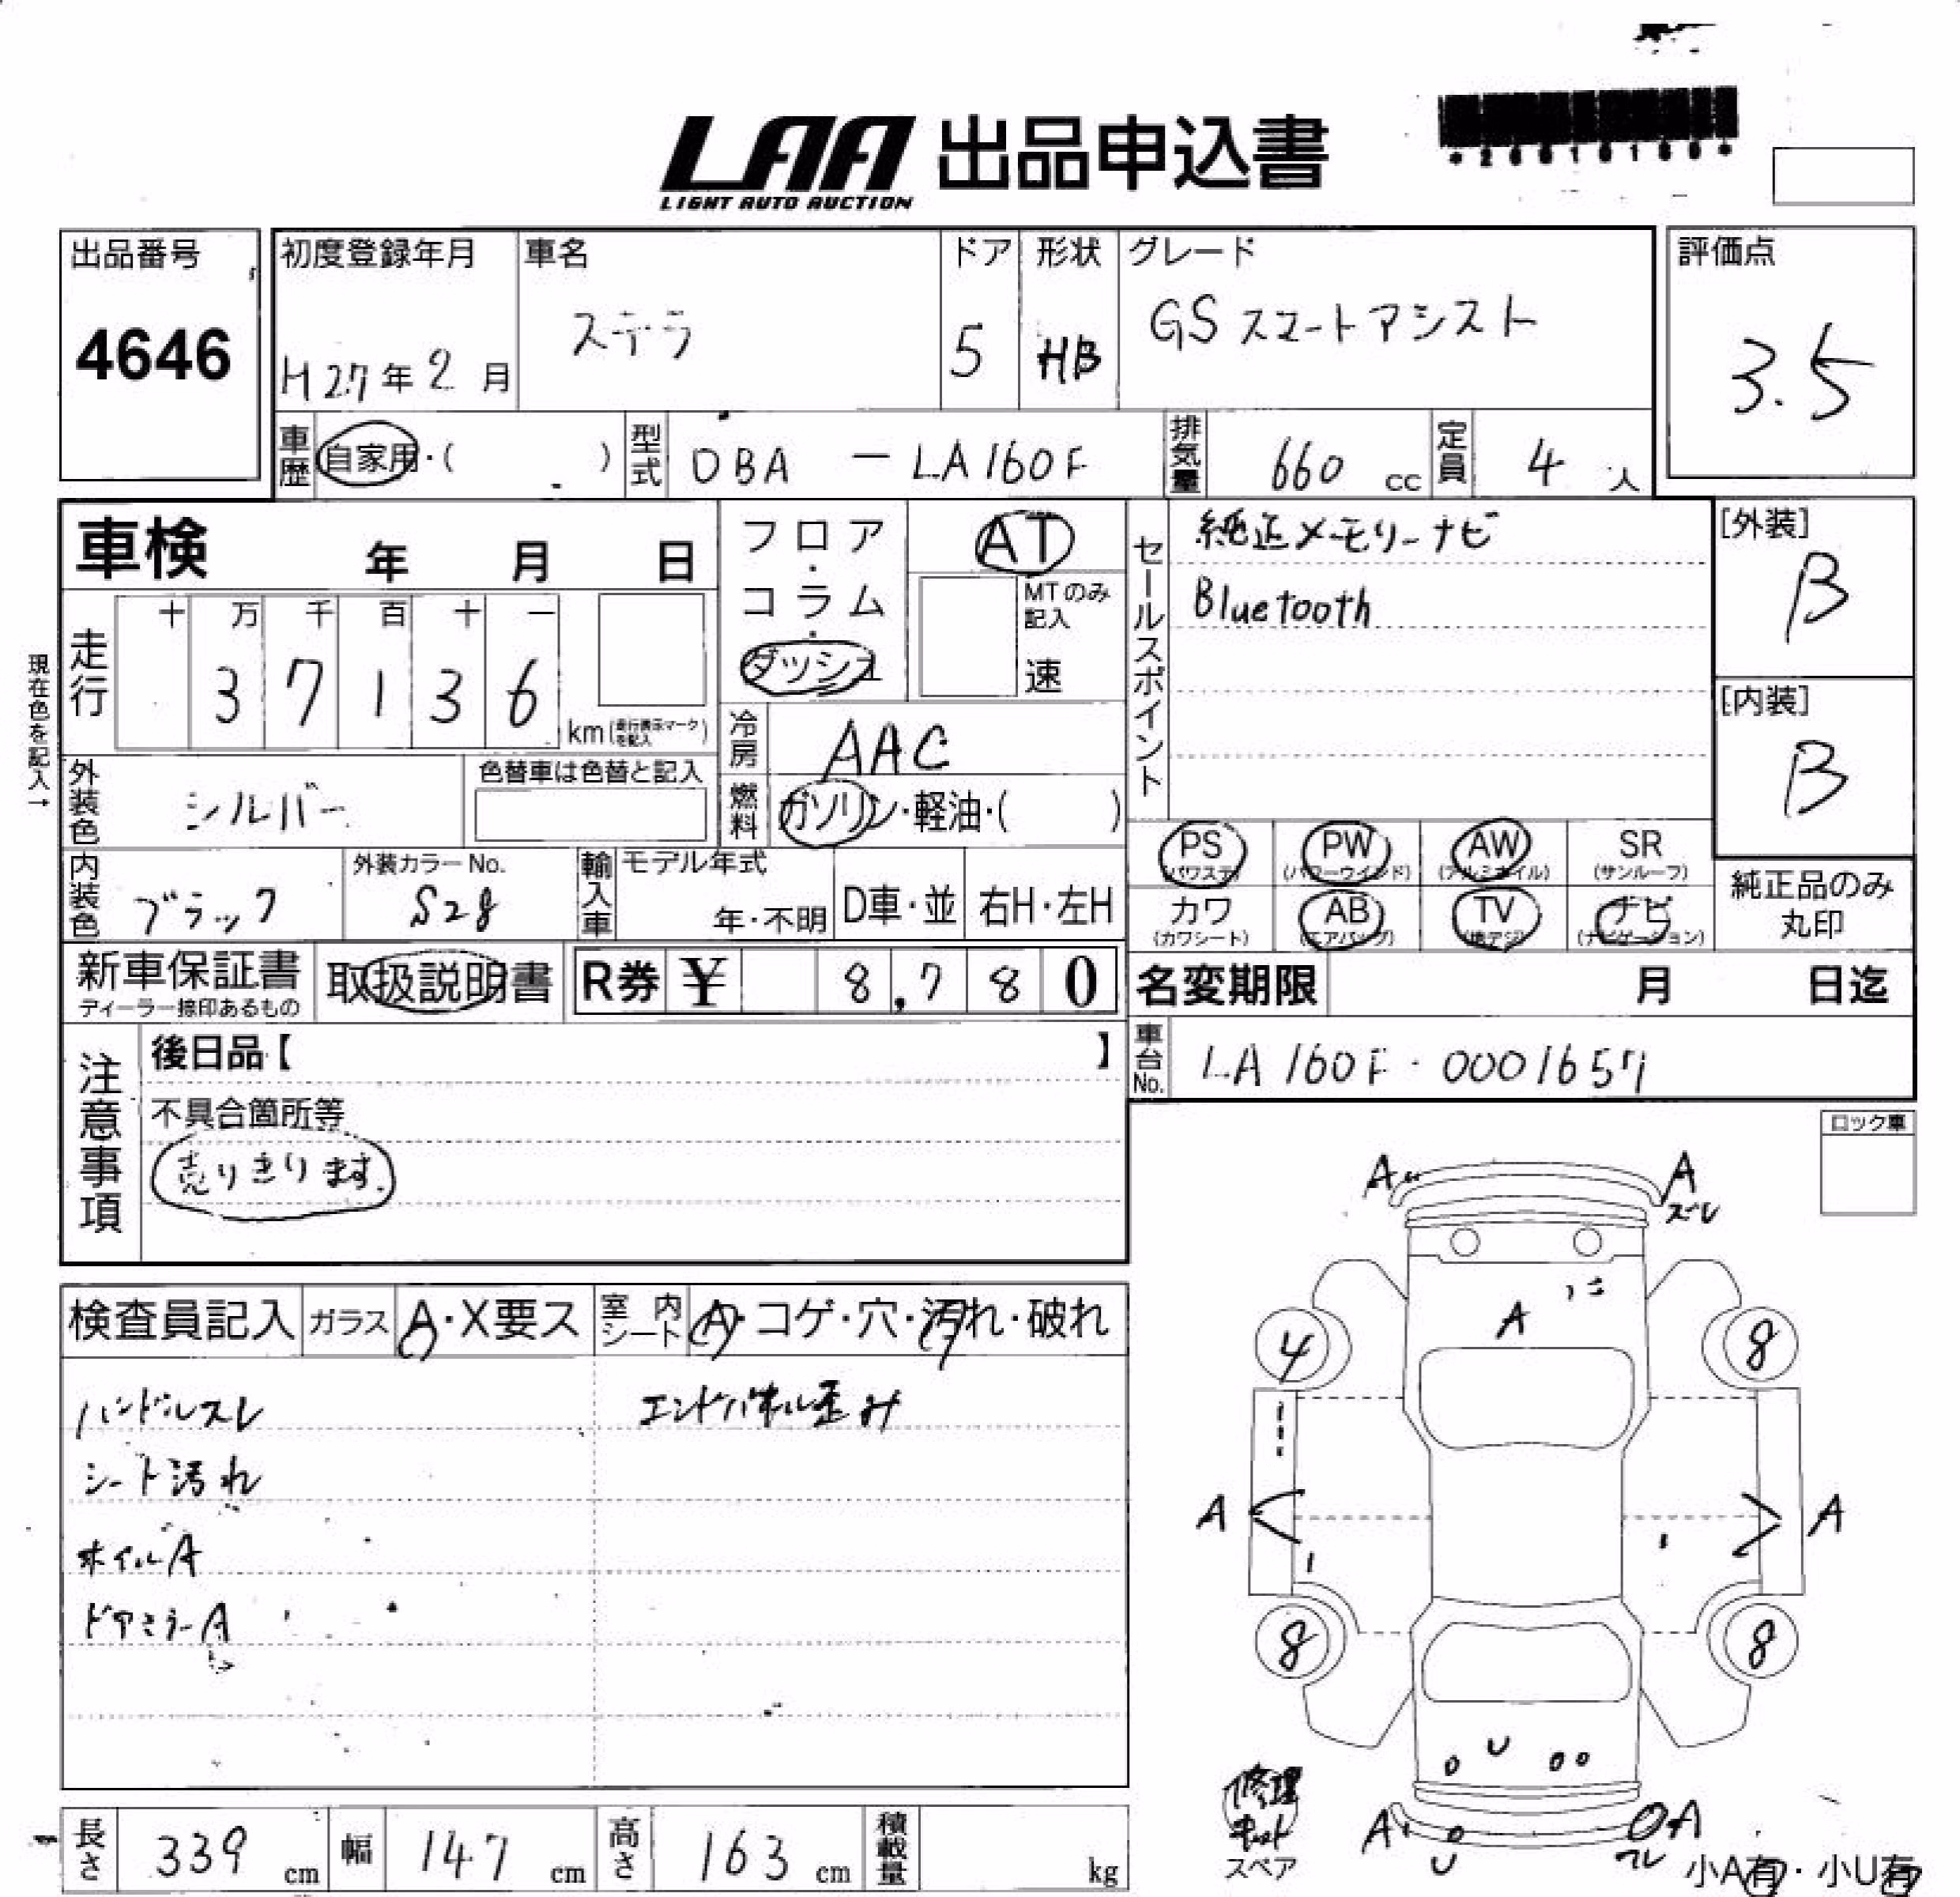 LAA 出品申込書
LIGHT AUTO AUCTION
出品番号
4646
初度登録年月
H27年2月
車名
ステラ
ドア
5
形状
HB
グレード
GS スマートアシスト
評価点
3.5
車歴 自家用・( )
型式 DBA - LA160F
排気量 660 cc
定員 4 人
車検 年 月 日
フロア・コラム・ダッシュ
AT
MTのみ記入
速
セールスポイント
純正メモリーナビ
Bluetooth
[外装]
B
[内装]
B
現在色を記入→
走行
十 万 千 百 十 一
3 7 1 3 6
km(走行表示マークを記入)
冷房 AAC
外装色 シルバー
色替車は色替と記入
燃料 ガソリン・軽油・( )
PS (パワステ)
PW (パワーウインド)
AW (アルミホイル)
SR (サンルーフ)
カワ (カワシート)
AB (エアバック)
TV (地デジ)
ナビ (ナビゲーション)
純正品のみ丸印
内装色 ブラック
外装カラーNo. S28
輸入車
モデル年式
年・不明
D車・並
右H・左H
新車保証書
ディーラー捺印あるもの
取扱説明書
R券 ¥ 8,780
名変期限 月 日迄
車台No. LA160F - 0001657
注意事項
後日品【 】
不具合箇所等
売りきります。
ロック車
A A
ズレ
A
4 8
A A
8 8
U
修理キット
スペア
A U A
ズレ
小A有・小U有
検査員記入
ガラス A・X要ス
室内シート A・コゲ・穴・汚れ・破れ
ハンドルスレ
エンドパネル歪み
シート汚れ
ホイルA
ドアミラーA
長さ 339 cm
幅 147 cm
高さ 163 cm
積載量 kg